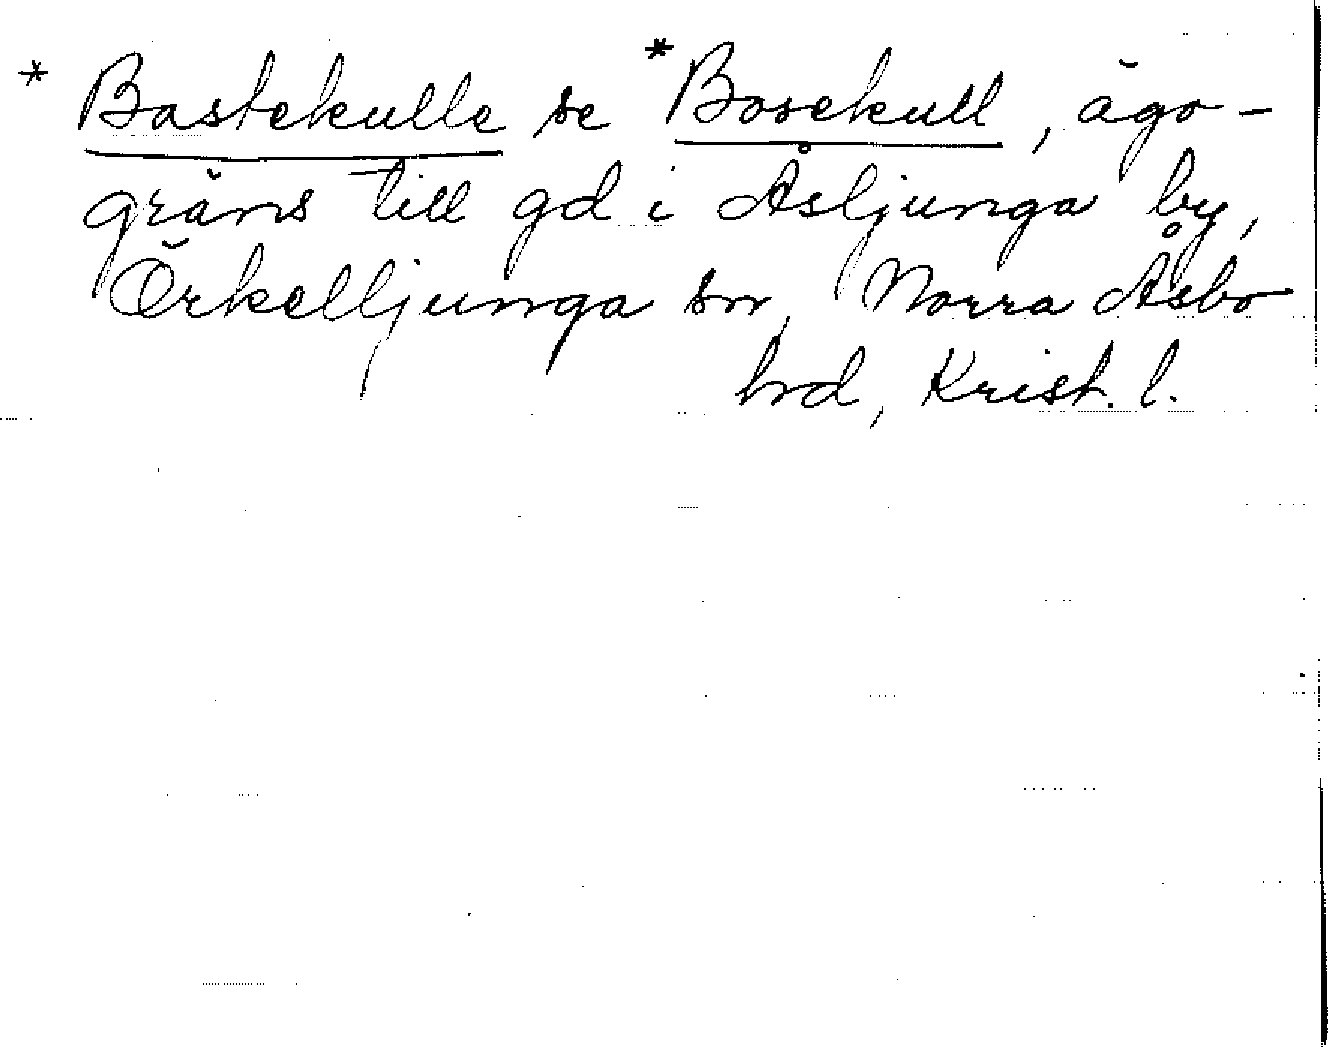 * Bastekulle se *Bosekull, ägo-
gräns till gd i Åsljunga by,
Örkelljunga sn, Norra Åsbo
hrd, Krist. l.